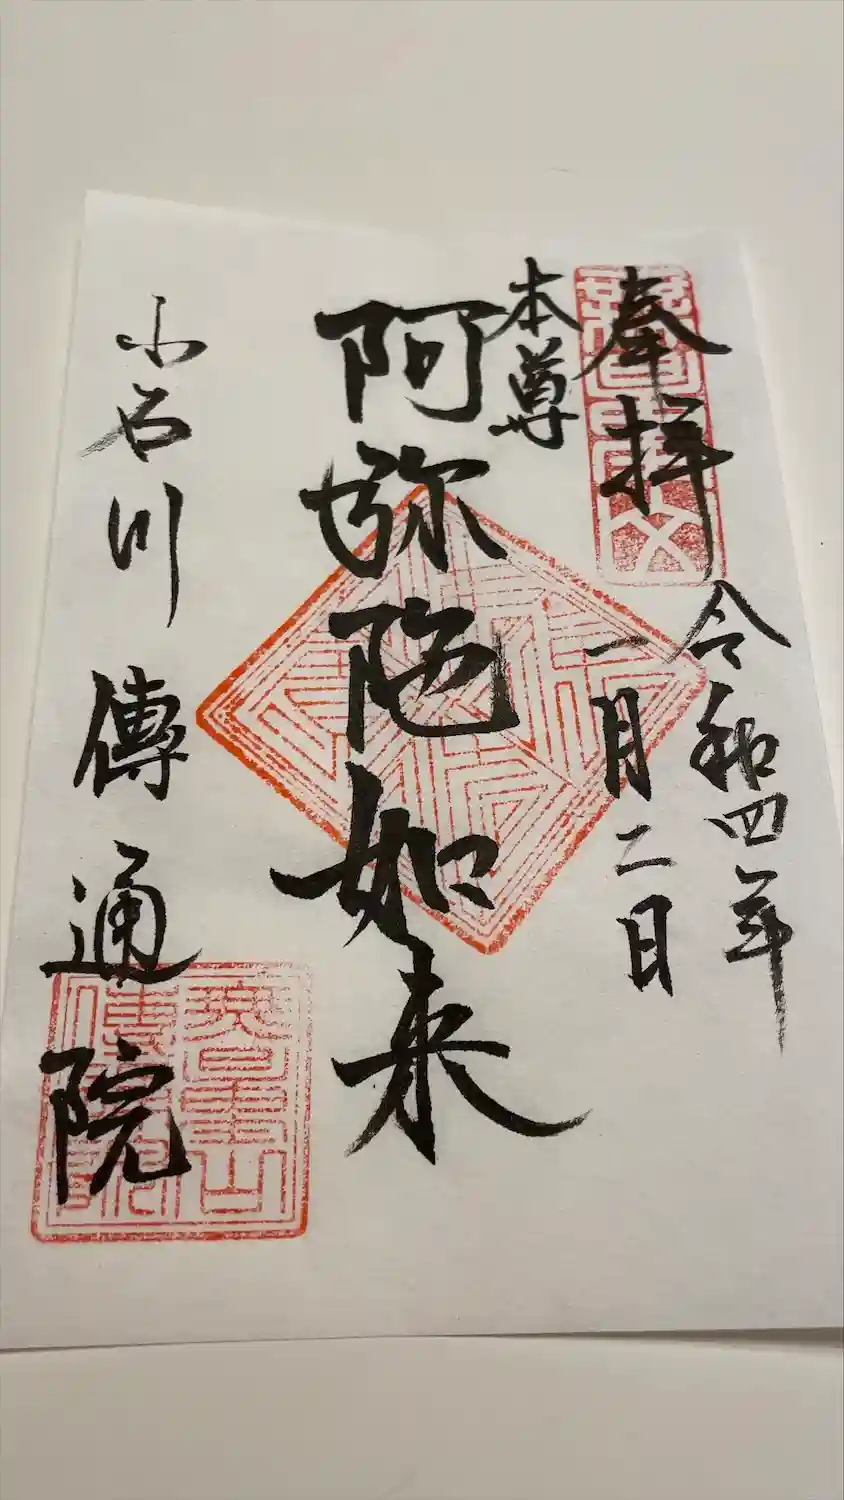 奉拝
令和四年
一月二日
本尊
阿弥陀如来
小石川 傳通院